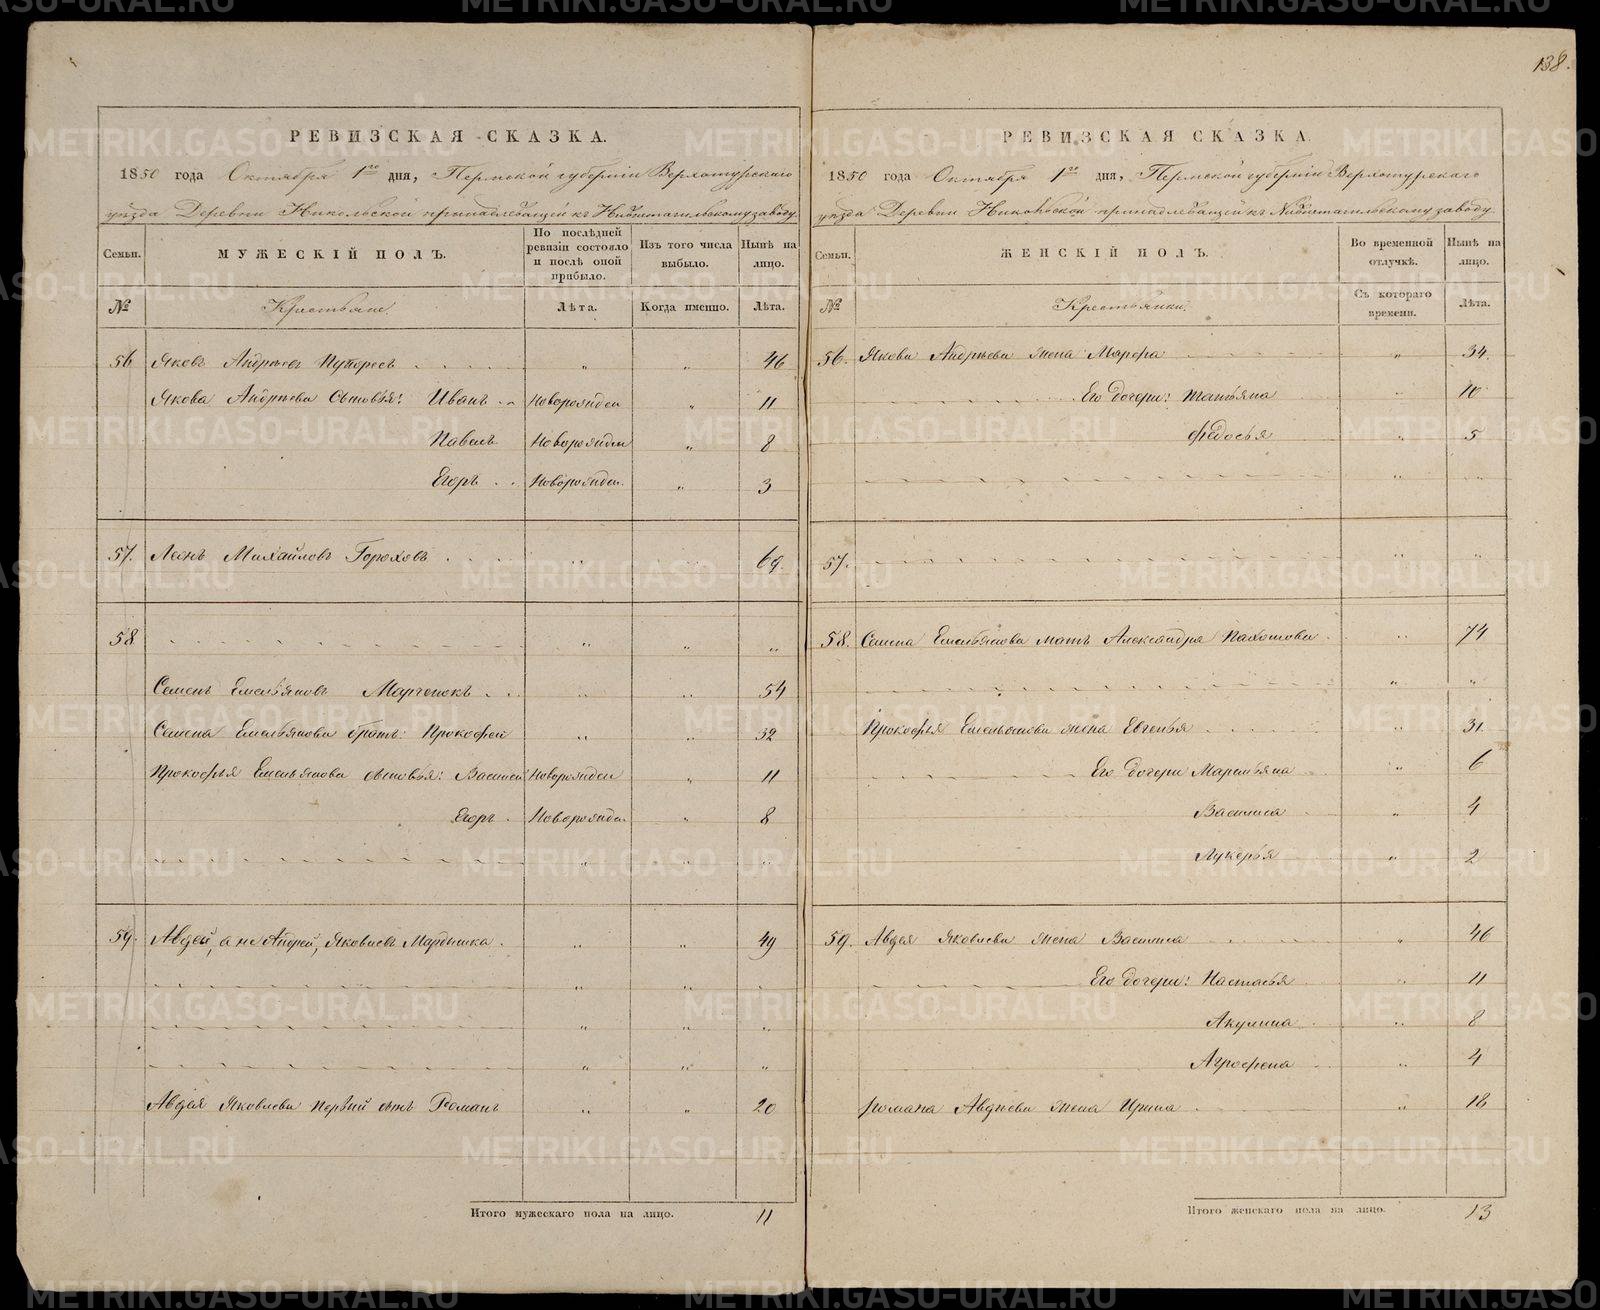 138.
РЕВИЗСКАЯ СКАЗКА.
1850 года Октября 1го дня, Пермской губерніи Верхотурскаго
уѣзда Деревни Никольской принадлежащей къ Нижнетагильскому заводу.
Семьи.
МУЖЕСКІЙ ПОЛЪ.
По послѣдней ревизіи состояло и послѣ оной прибыло.
Изъ того числа выбыло.
Нынѣ на лицо.
№
Крестьяне.
Лѣта.
Когда именно.
Лѣта.
56 Яковъ Андреевъ 46
Якова Андреева сыновья: Иванъ Новорожден 11
Павелъ Новорожден 8
Егоръ Новорожден. 3
57. Леонъ Михайловъ Гороховъ 69.
58
Семенъ Емельяновъ 54
Семена Емельянова братъ Прокофей 32
Прокофья Емельянова сыновья: Василей Новорожден 11
Егоръ Новорожден. 8
59. Авдей, а не Андрей, Яковлевъ 49
Авдея Яковлева первый сынъ Романъ 20
Итого мужескаго пола на лицо. 11
РЕВИЗСКАЯ СКАЗКА.
1850 года Октября 1го дня, Пермской губерніи Верхотурскаго
уѣзда Деревни Никольской принадлежащей къ Нижнетагильскому заводу.
Семьи.
ЖЕНСКІЙ ПОЛЪ.
Во временной отлучкѣ.
Нынѣ на лицо.
№
Крестьянки.
Съ котораго времени.
Лѣта.
56. Якова Андреева жена Марфа 34.
Его дочери: Татьяна 10
Федосья 5
57.
58. Семена Емельянова мать Александра Пахомова 74
Прокофья Емельянова жена Евгенья 31.
Его дочери Маремьяна 6
Василиса 4
Лукерья 2
59. Авдея Яковлева жена Василиса 46
Его дочери: Настасья 11
Акулина 8
Агрофена 4
Романа Авдеева жена Ирина 18
Итого женскаго пола на лицо. 13
METRIKI.GASO-URAL.RU